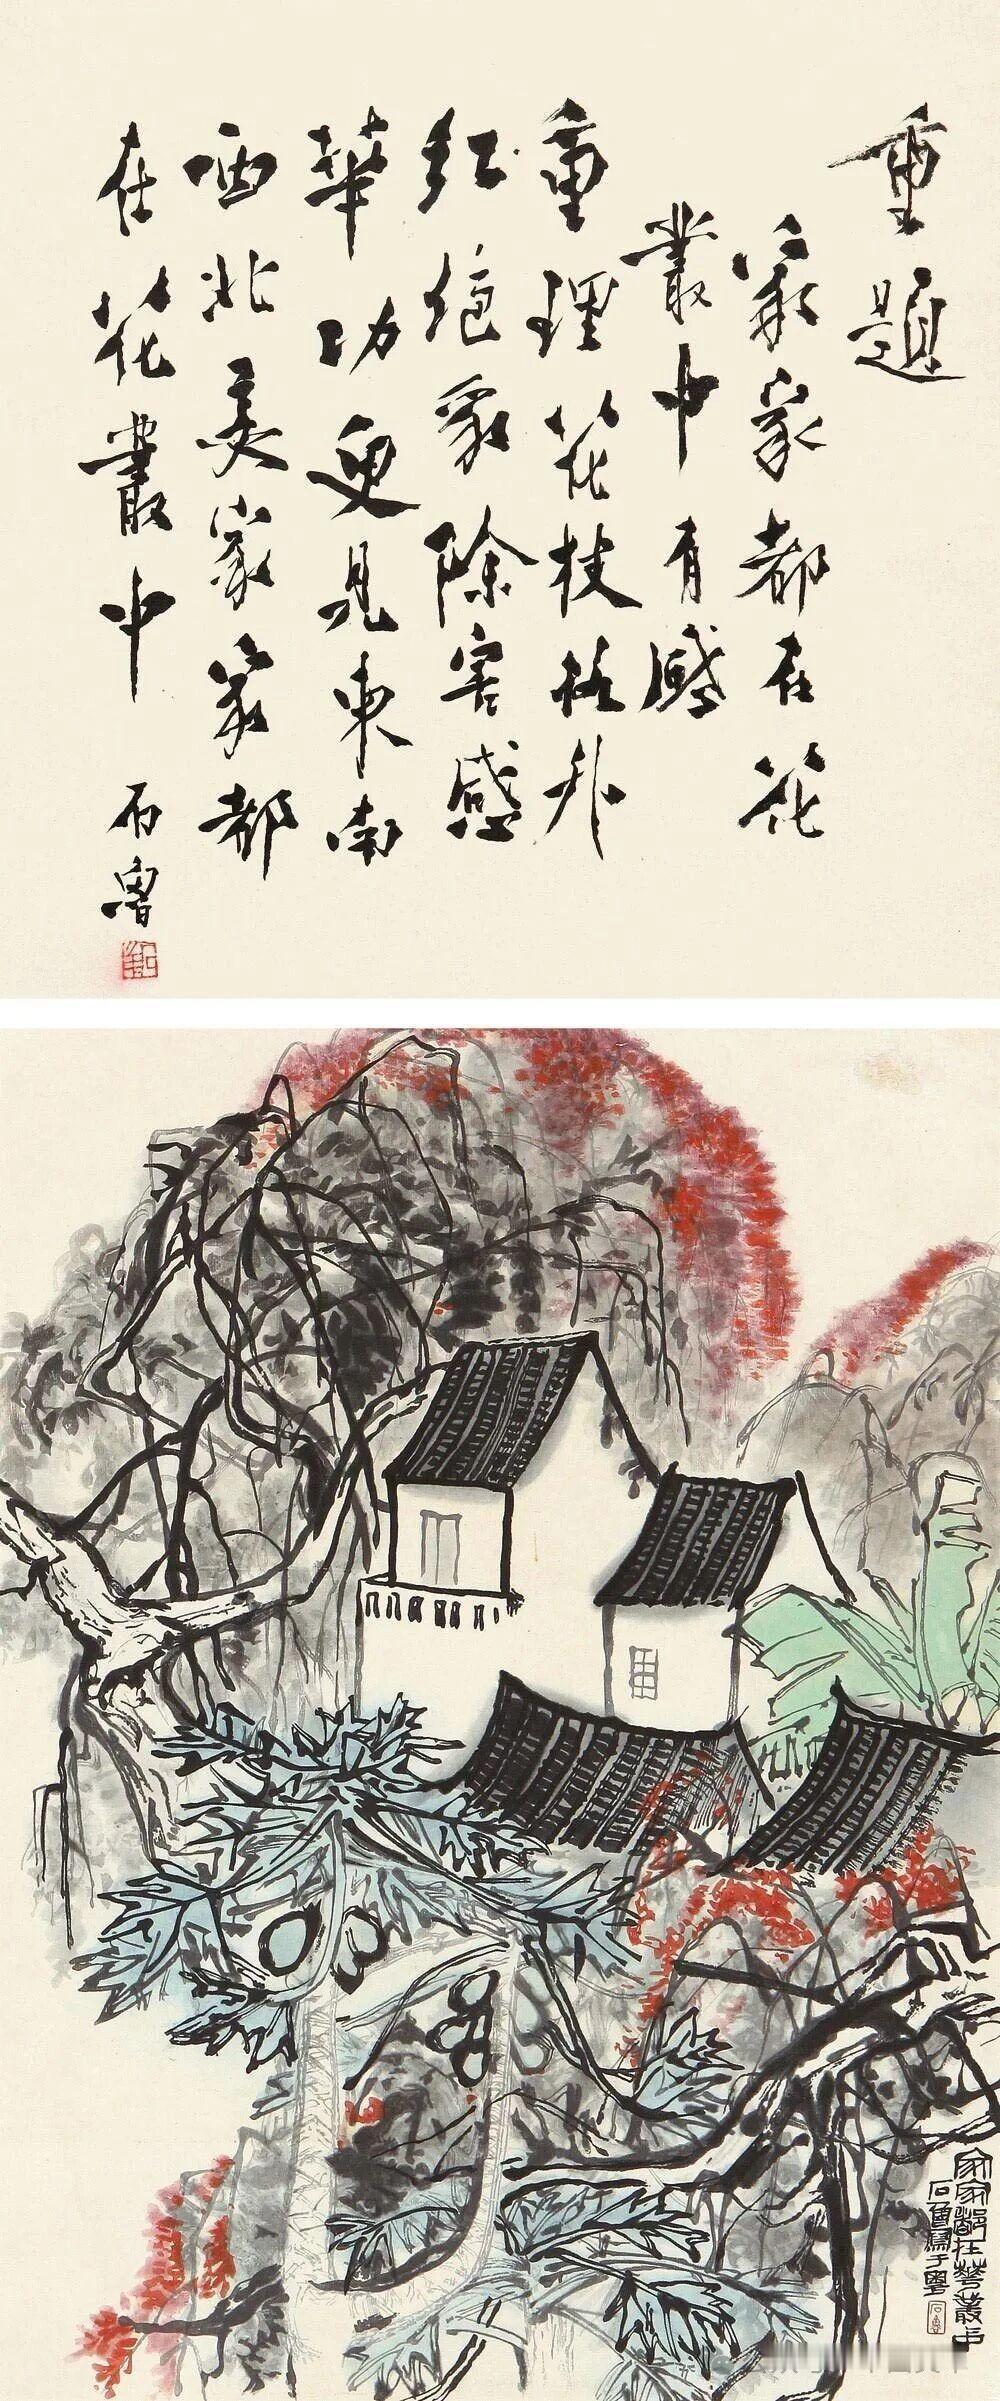 重題
家家都在花
叢中有感
重理花枝格外
红绝家除害感
華功更見東南
西北美家家都
在花叢中 石魯
家家都在華叢中
石魯寫于粵